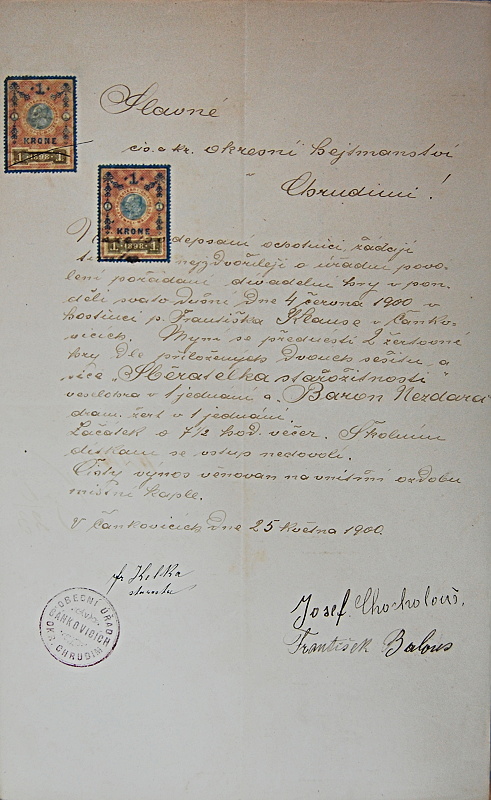 1
KRONE
1 1898 1
1
KRONE
1 1898 1
Slavné
cís. a kr. okresní hejtmanství
v Chrudimi!
depsaní ochotníci žádají
nejzdvořileji o úřadní povo-
lení pořádání divadelní hry v pon-
dělí svatodušní dne 4 června 1900 v
hostinci p. Františka Klause v Čanko-
vicích. Mým se předností 2 žertovní
hry dle přiložených dvouch sešitů a
sice „Sběratelka starožitností"
veselohra v 1 jednání a. Baron Nezdara
dram. žert v 1 jednání.
Začátek o 7 1/2 hod. večer. Školním
dítkám se vstup nedovolí.
Čistý výnos věnován na vnitřní ozdobu
místní kaple.
V Čankovicích dne 25 května 1900.
fr. Kelka
starosta
Josef Chocholouš,
František Balous
OBECNÍ ÚŘAD
ČANKOVICÍCH
OKR. CHRUDIM